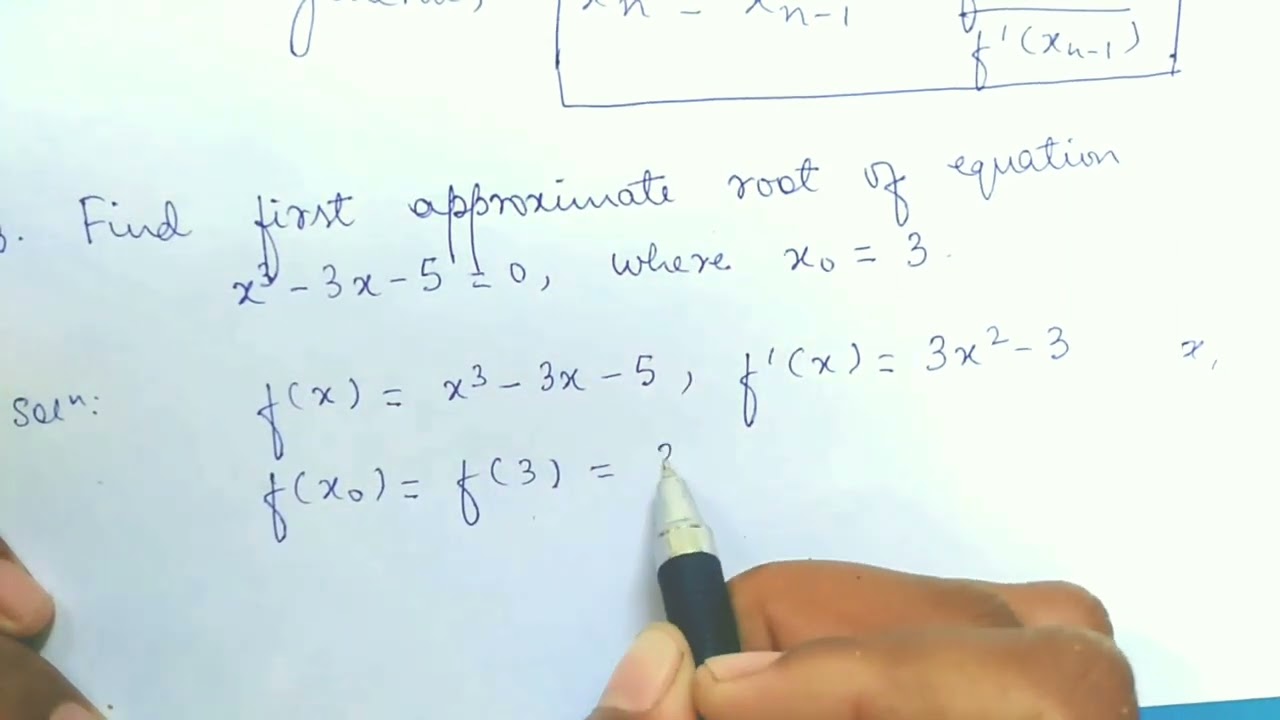 xn = xn-1
f'(xn-1)
Find first approximate root of equation
x³ - 3x - 5 = 0, where x₀ = 3.
Solⁿ: f(x) = x³ - 3x - 5, f'(x) = 3x² - 3 x₁
f(x₀) = f(3) =